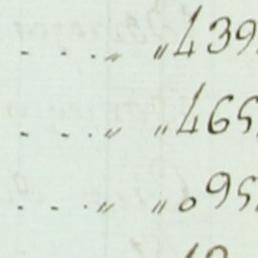 - - . „ „ 439
- - . „ „ 465
- - . „ „ 095